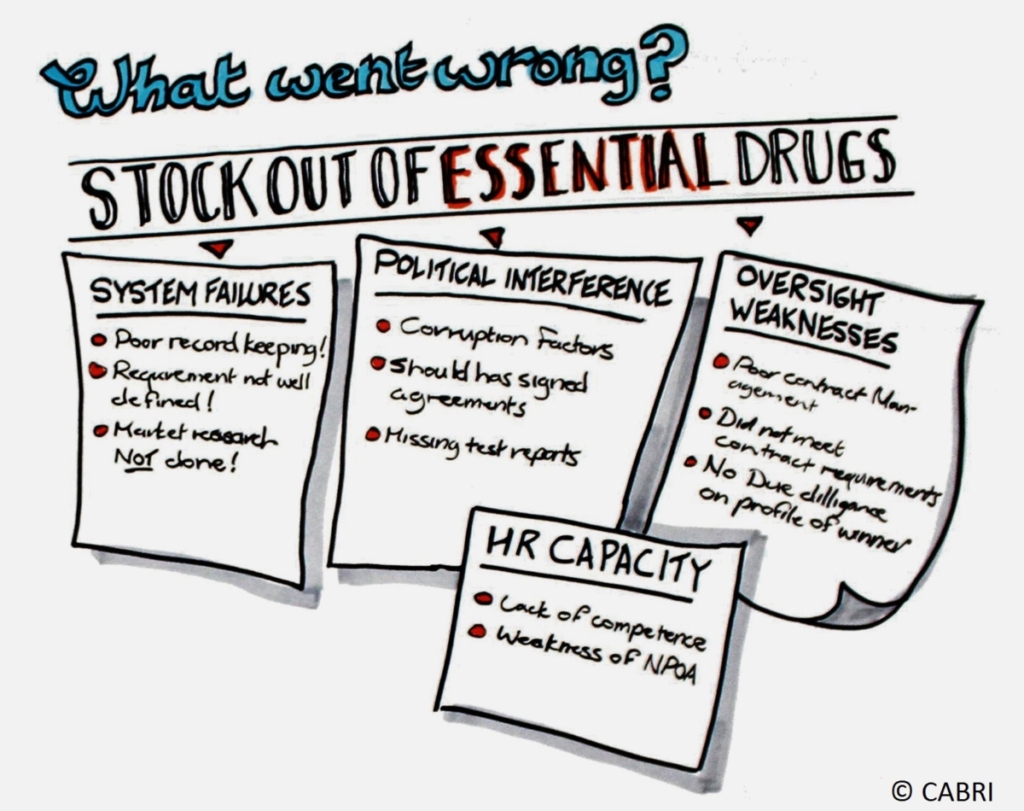 What went wrong?
STOCK OUT OF ESSENTIAL DRUGS
SYSTEM FAILURES
Poor record keeping!
Requirement not well
defined!
Market research
NOT done!
POLITICAL INTERFERENCE
Corruption Factors
Should has signed
agreements
Missing test reports
OVERSIGHT
WEAKNESSES
Poor contract Man-
agement
Did not meet
contract requirements
No Due dilligance
on profile of winner
HR CAPACITY
Lack of competence
Weakness of NPOA
© CABRI